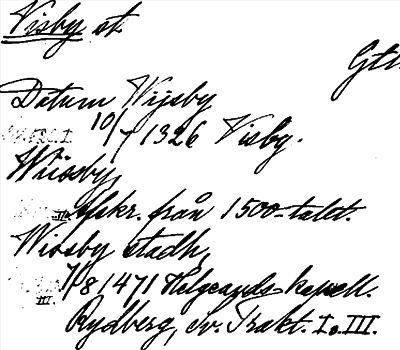 Visby st.
Gtl.
Datum Wijsby
10/7 1326 Visby.
Wiisby,
afskr. från 1500-talet.
Wissby stadh,
III. 7/8 1471 Helgeands-kapell.
Rydberg, Sv. Trakt. I o. III.